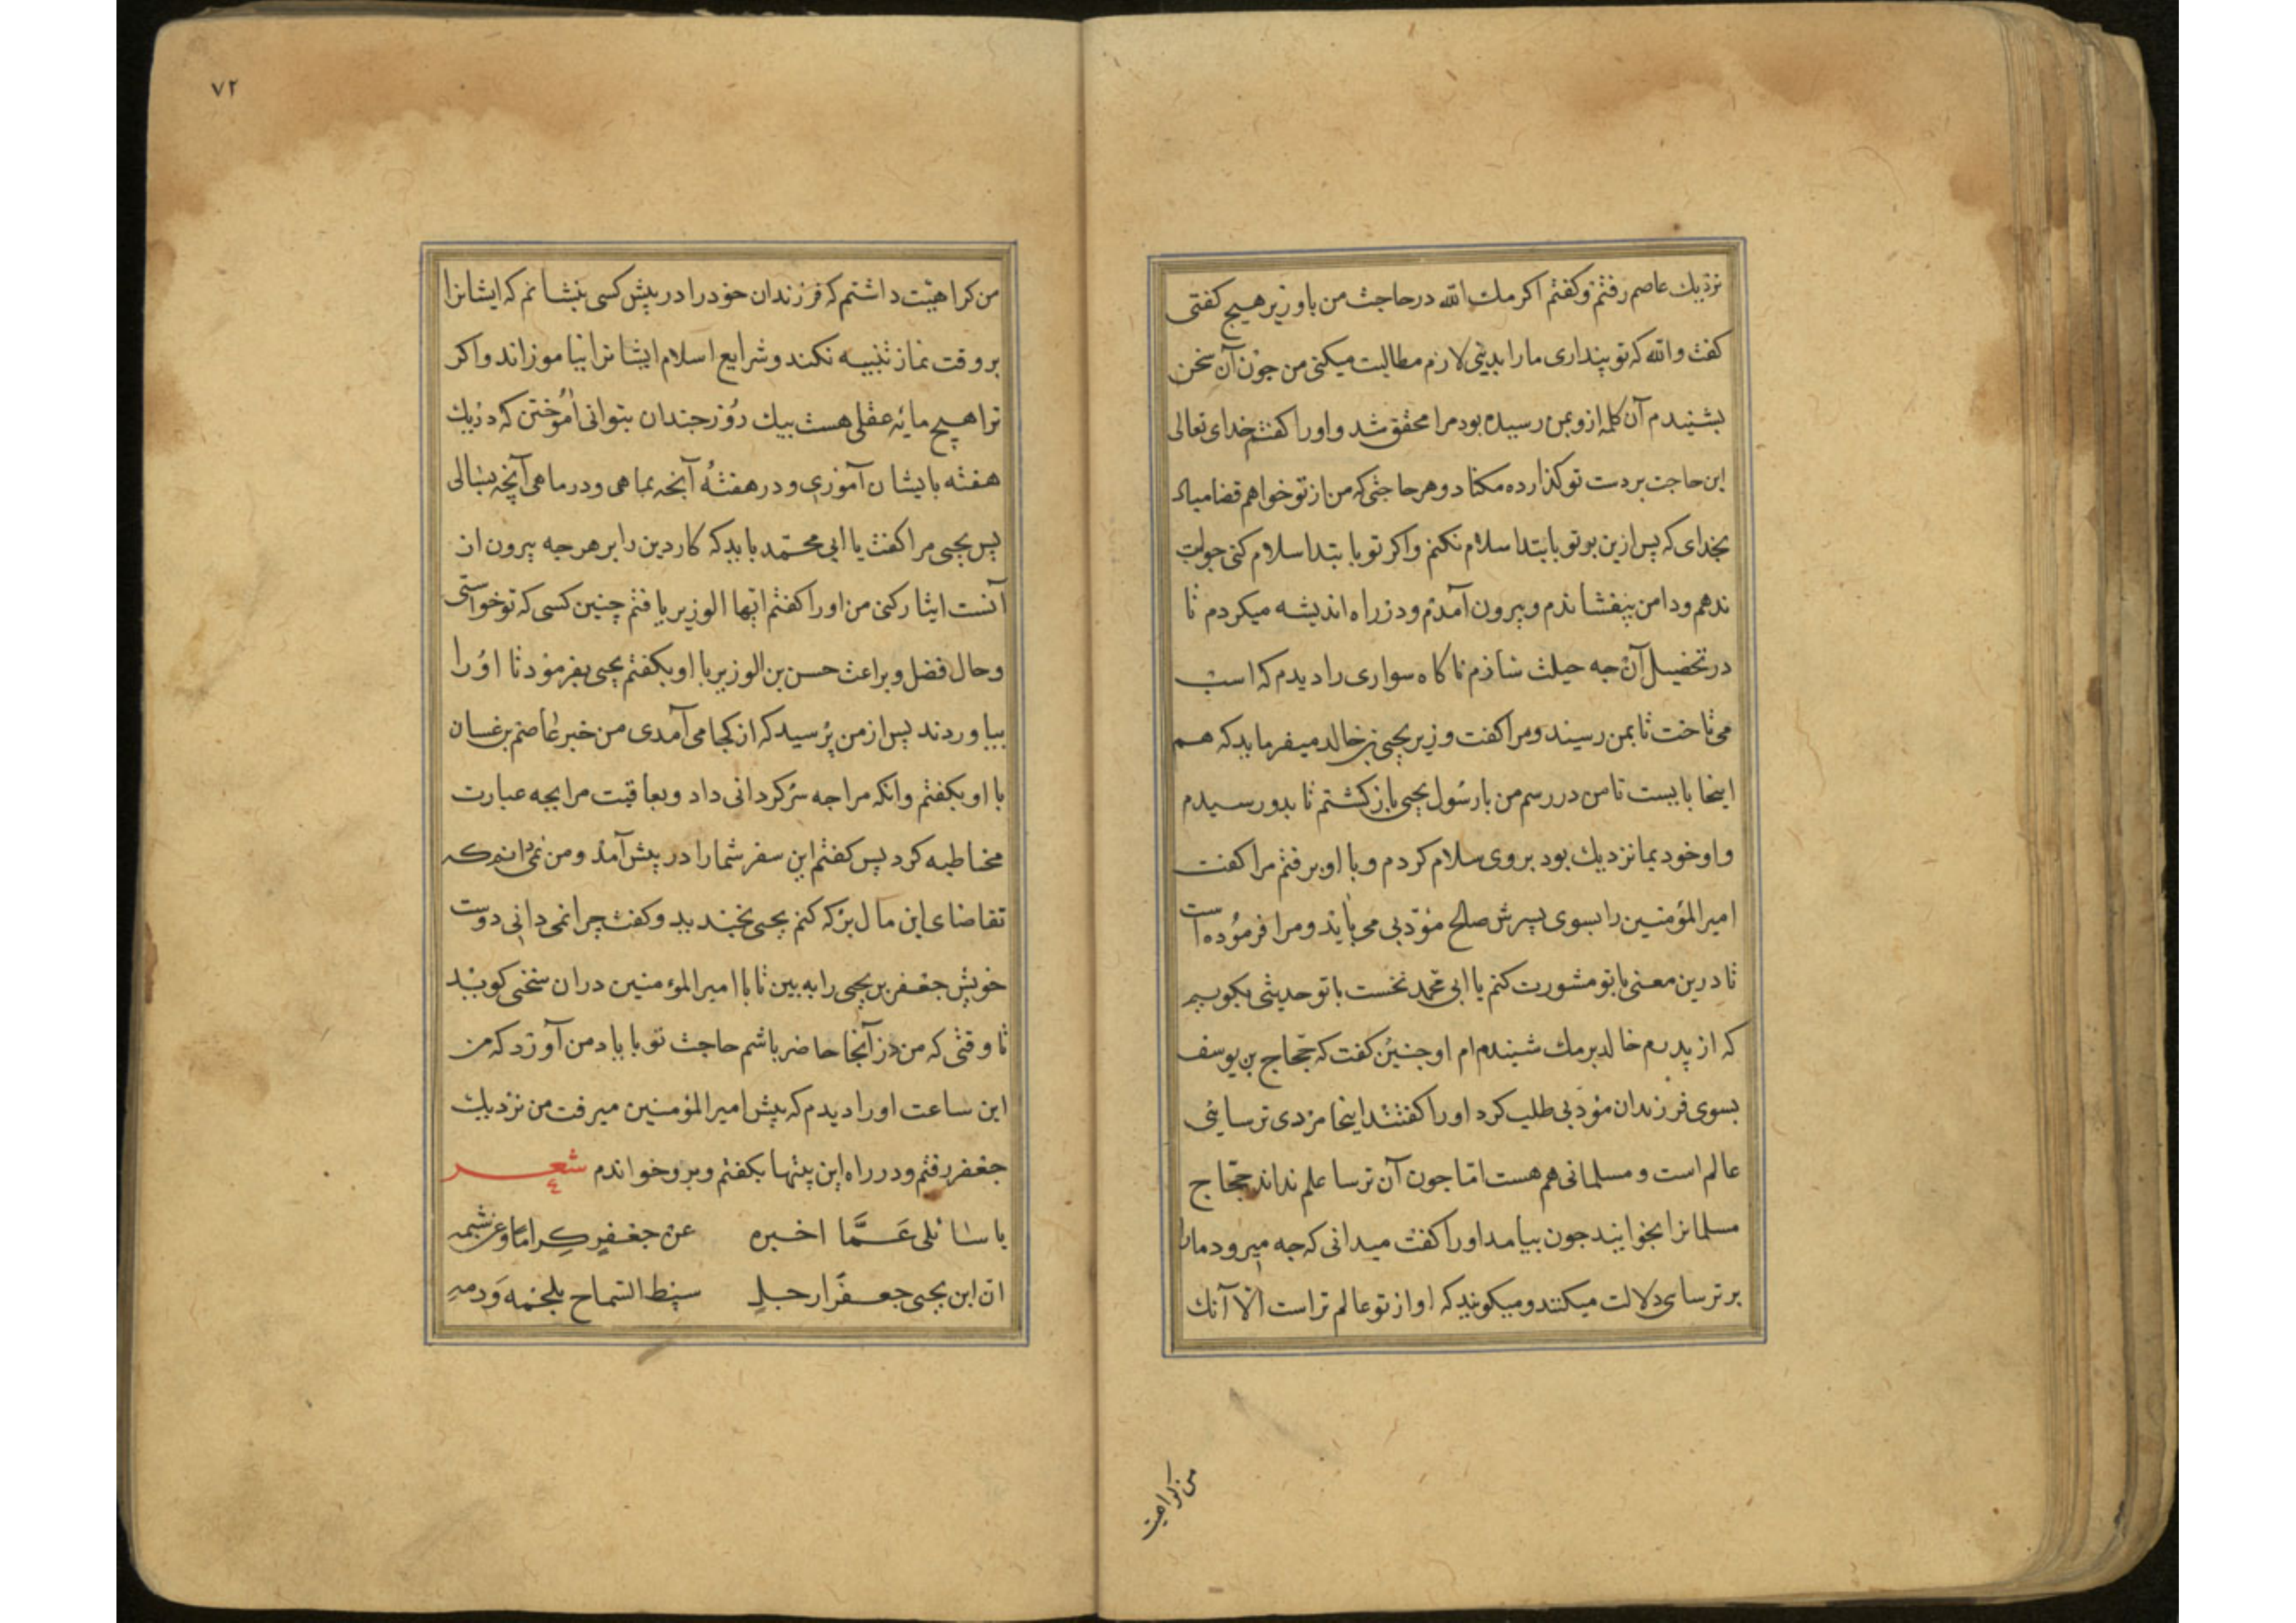 نزدیك عاصم رفتم و کفتم اکرمك الله در حاجت من با وزیر هیچ کفتی
کفت والله که تو پنداری ما را بدینی لازم مطالبت میکنی من جون آن سخن
بشنیدم آن کلمه ازو بمن رسیده بود مرا محقق شد و او را کفتم خدای تعالی
این حاجت بر دست تو کذارده مکناد و هر حاجتی که من از تو خواهم قضا مباد
بخدای که پس ازین بر تو بابتدا سلام نکنم و اکر تو بابتدا سلام کنی جوابت
ندهم و دامن بیفشاندم و بیرون آمدم و در راه اندیشه میکردم تا
در تحصیل آن جه حیلت سازم ناکاه سواری را دیدم که اسب
می تاخت تا بمن رسیند و مرا کفت وزیر یحیی بن خالد میفرماید که هم
اینجا بایست تا من در رسم من با رسول یحیی باز کشتم تا بدو رسیدم
و او خود بما نزدیك بود بر وی سلام کردم و با او برفتم مرا کفت
امیرالمؤمنین را بسوی پسرش صالح مؤدبی می باید و مرا فرموده است
تا درین معنی با تو مشورت کنم یا ابی محمد نخست با تو حدیثی بکویم
که از پدرم خالد برمك شنیده ام او جنین کفت که حجاج بن یوسف
بسوی فرزندان مؤدبی طلب کرد او را کفتند اینجا مردی ترسایئ
عالم است و مسلمانی هم هست اما جون آن ترسا علم نداند حجاج
مسلمانرا بخوانیند جون بیامد او را کفت میدانی که جه میرود مارا
بر ترسای دلالت میکنند و میکویند که او از تو عالم تر است الا آنك
من کراهیت
۷۲
من کراهیت داشتم که فرزندان خود را در پیش کسی بنشانم که ایشانرا
بر وقت نماز تنبیه نکند و شرایع اسلام ایشانرا نیاموزاند و اکر
ترا هیچ مایهٔ عقلی هست بیك روز جندان بتوانی آموختن که در یك
هفته بایشان آموزی و در هفتهٔ آنجه بماهی و در ماهی آنچه بسالی
پس یحیی مرا کفت یا ابی محمد باید که کار دین را بر هر جه بیرون از
آنست ایثار کنی من او را کفتم ایها الوزیر یافتم چنین کسی که تو خواستی
و حال فضل و براعت حسن بن الوزیر با او بکفتم یحیی بفرمود تا او را
بیاوردند پس از من پرسید که از کجا می آمدی من خبر عاصم بن غسان
با او بکفتم و انکه مرا جه سرکردانی داد و بعاقبت مرا بجه عبارت
مخاطبه کرد پس کفتم این سفر شما را در پیش آمد و من نمیدانم که
تقاضای این مال بر که کنم یحیی بخندید و کفت چرا نمی دانی دوست
خویش جعفر بن یحیی را به بین تا با امیرالمؤمنین دران سخنی کویند
تا وقتی که من در آنجا حاضر باشم حاجت تو با یاد من آورد که من
این ساعت او را دیدم که پیش امیرالمؤمنین میرفت من نزدیك
جعفر رفتم و در راه این بیتها بکفتم و برو خواندم شعر
یا سائلی عَمَّا اخبره عن جعفرٍ کِراما وعن شیمه
ان ابن یحیی جعفرًا رجلٍ سیط السماح بلحمه وَدمهِ